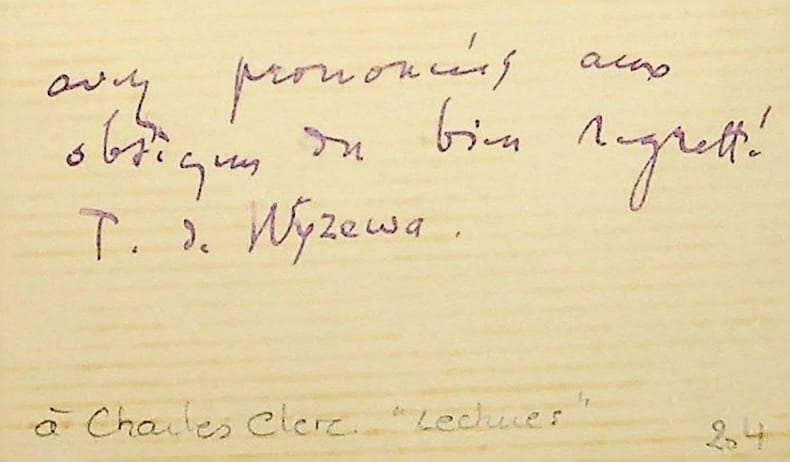 avez prononcés aux
obsèques du bien regretté
T. de Wyzewa.
à Charles Clerc. "Lectures"
204